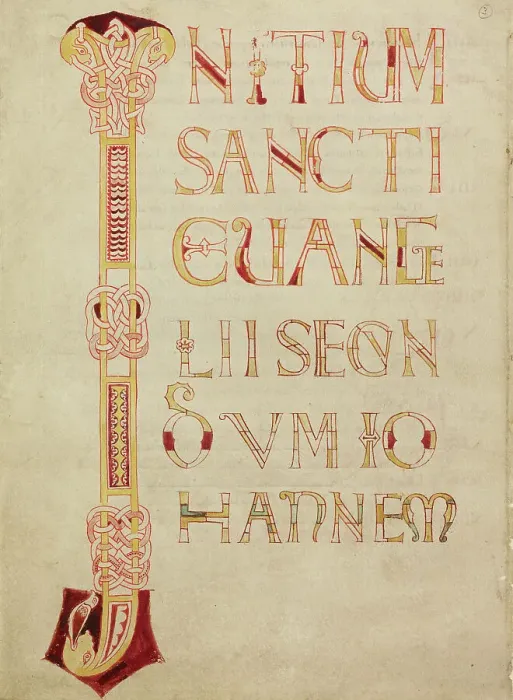 3
INITIUM
SANCTI
EUANGE
LII SECUN
DVM IO
HANNEM